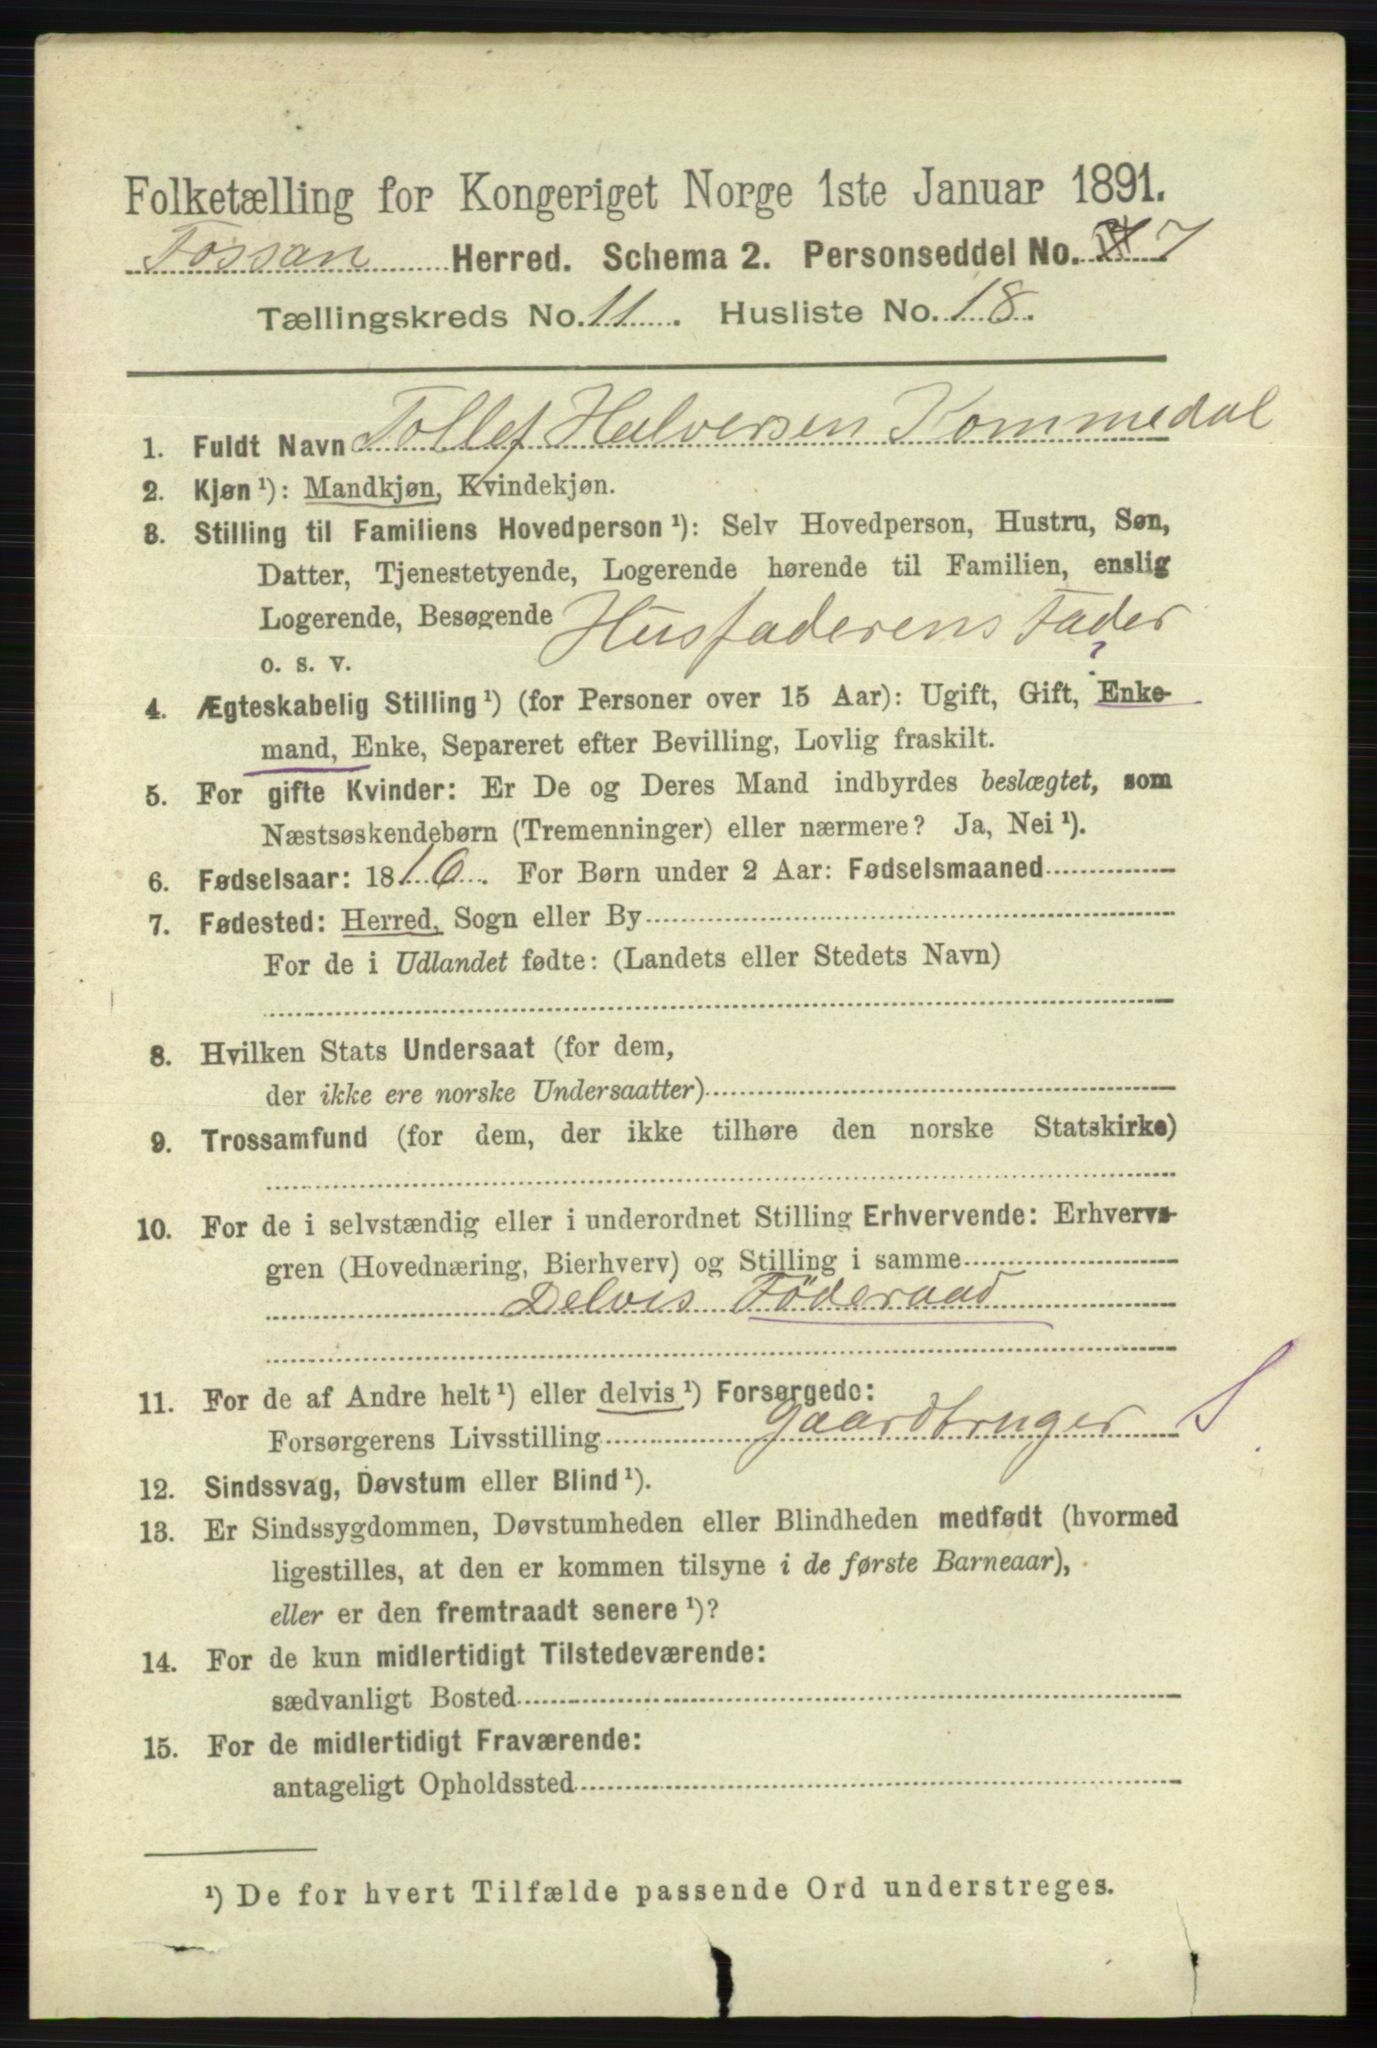 Folketælling for Kongeriget Norge 1ste Januar 1891.
Fossan Herred. Schema 2. Personseddel No. 7
Tællingskreds No. 11. Husliste No. 18.
1. Fuldt Navn Tollef Halversen Kommedal
2. Kjøn ¹): Mandkjøn, Kvindekjøn.
3. Stilling til Familiens Hovedperson ¹): Selv Hovedperson, Hustru, Søn,
Datter, Tjenestetyende, Logerende hørende til Familien, enslig
Logerende, Besøgende Husfaderens Fader
o. s. v.
4. Ægteskabelig Stilling ¹) (for Personer over 15 Aar): Ugift, Gift, Enke-
mand, Enke, Separeret efter Bevilling, Lovlig fraskilt.
5. For gifte Kvinder: Er De og Deres Mand indbyrdes beslægtet, som
Næstsøskendebørn (Tremenninger) eller nærmere? Ja, Nei ¹).
6. Fødselsaar: 1816. For Børn under 2 Aar: Fødselsmaaned
7. Fødested: Herred, Sogn eller By
For de i Udlandet fødte: (Landets eller Stedets Navn)
8. Hvilken Stats Undersaat (for dem,
der ikke ere norske Undersaatter)
9. Trossamfund (for dem, der ikke tilhøre den norske Statskirke)
10. For de i selvstændig eller i underordnet Stilling Erhvervende: Erhvervs-
gren (Hovednæring, Bierhverv) og Stilling i samme
Delvis Föderaad
11. For de af Andre helt ¹) eller delvis ¹) Forsørgede:
Forsørgerens Livsstilling Gaardbruger S
12. Sindssvag, Døvstum eller Blind ¹).
13. Er Sindssygdommen, Døvstumheden eller Blindheden medfødt (hvormed
ligestilles, at den er kommen tilsyne i de første Barneaar),
eller er den fremtraadt senere ¹)?
14. For de kun midlertidigt Tilstedeværende:
sædvanligt Bosted
15. For de midlertidigt Fraværende:
antageligt Opholdssted
¹) De for hvert Tilfælde passende Ord understreges.